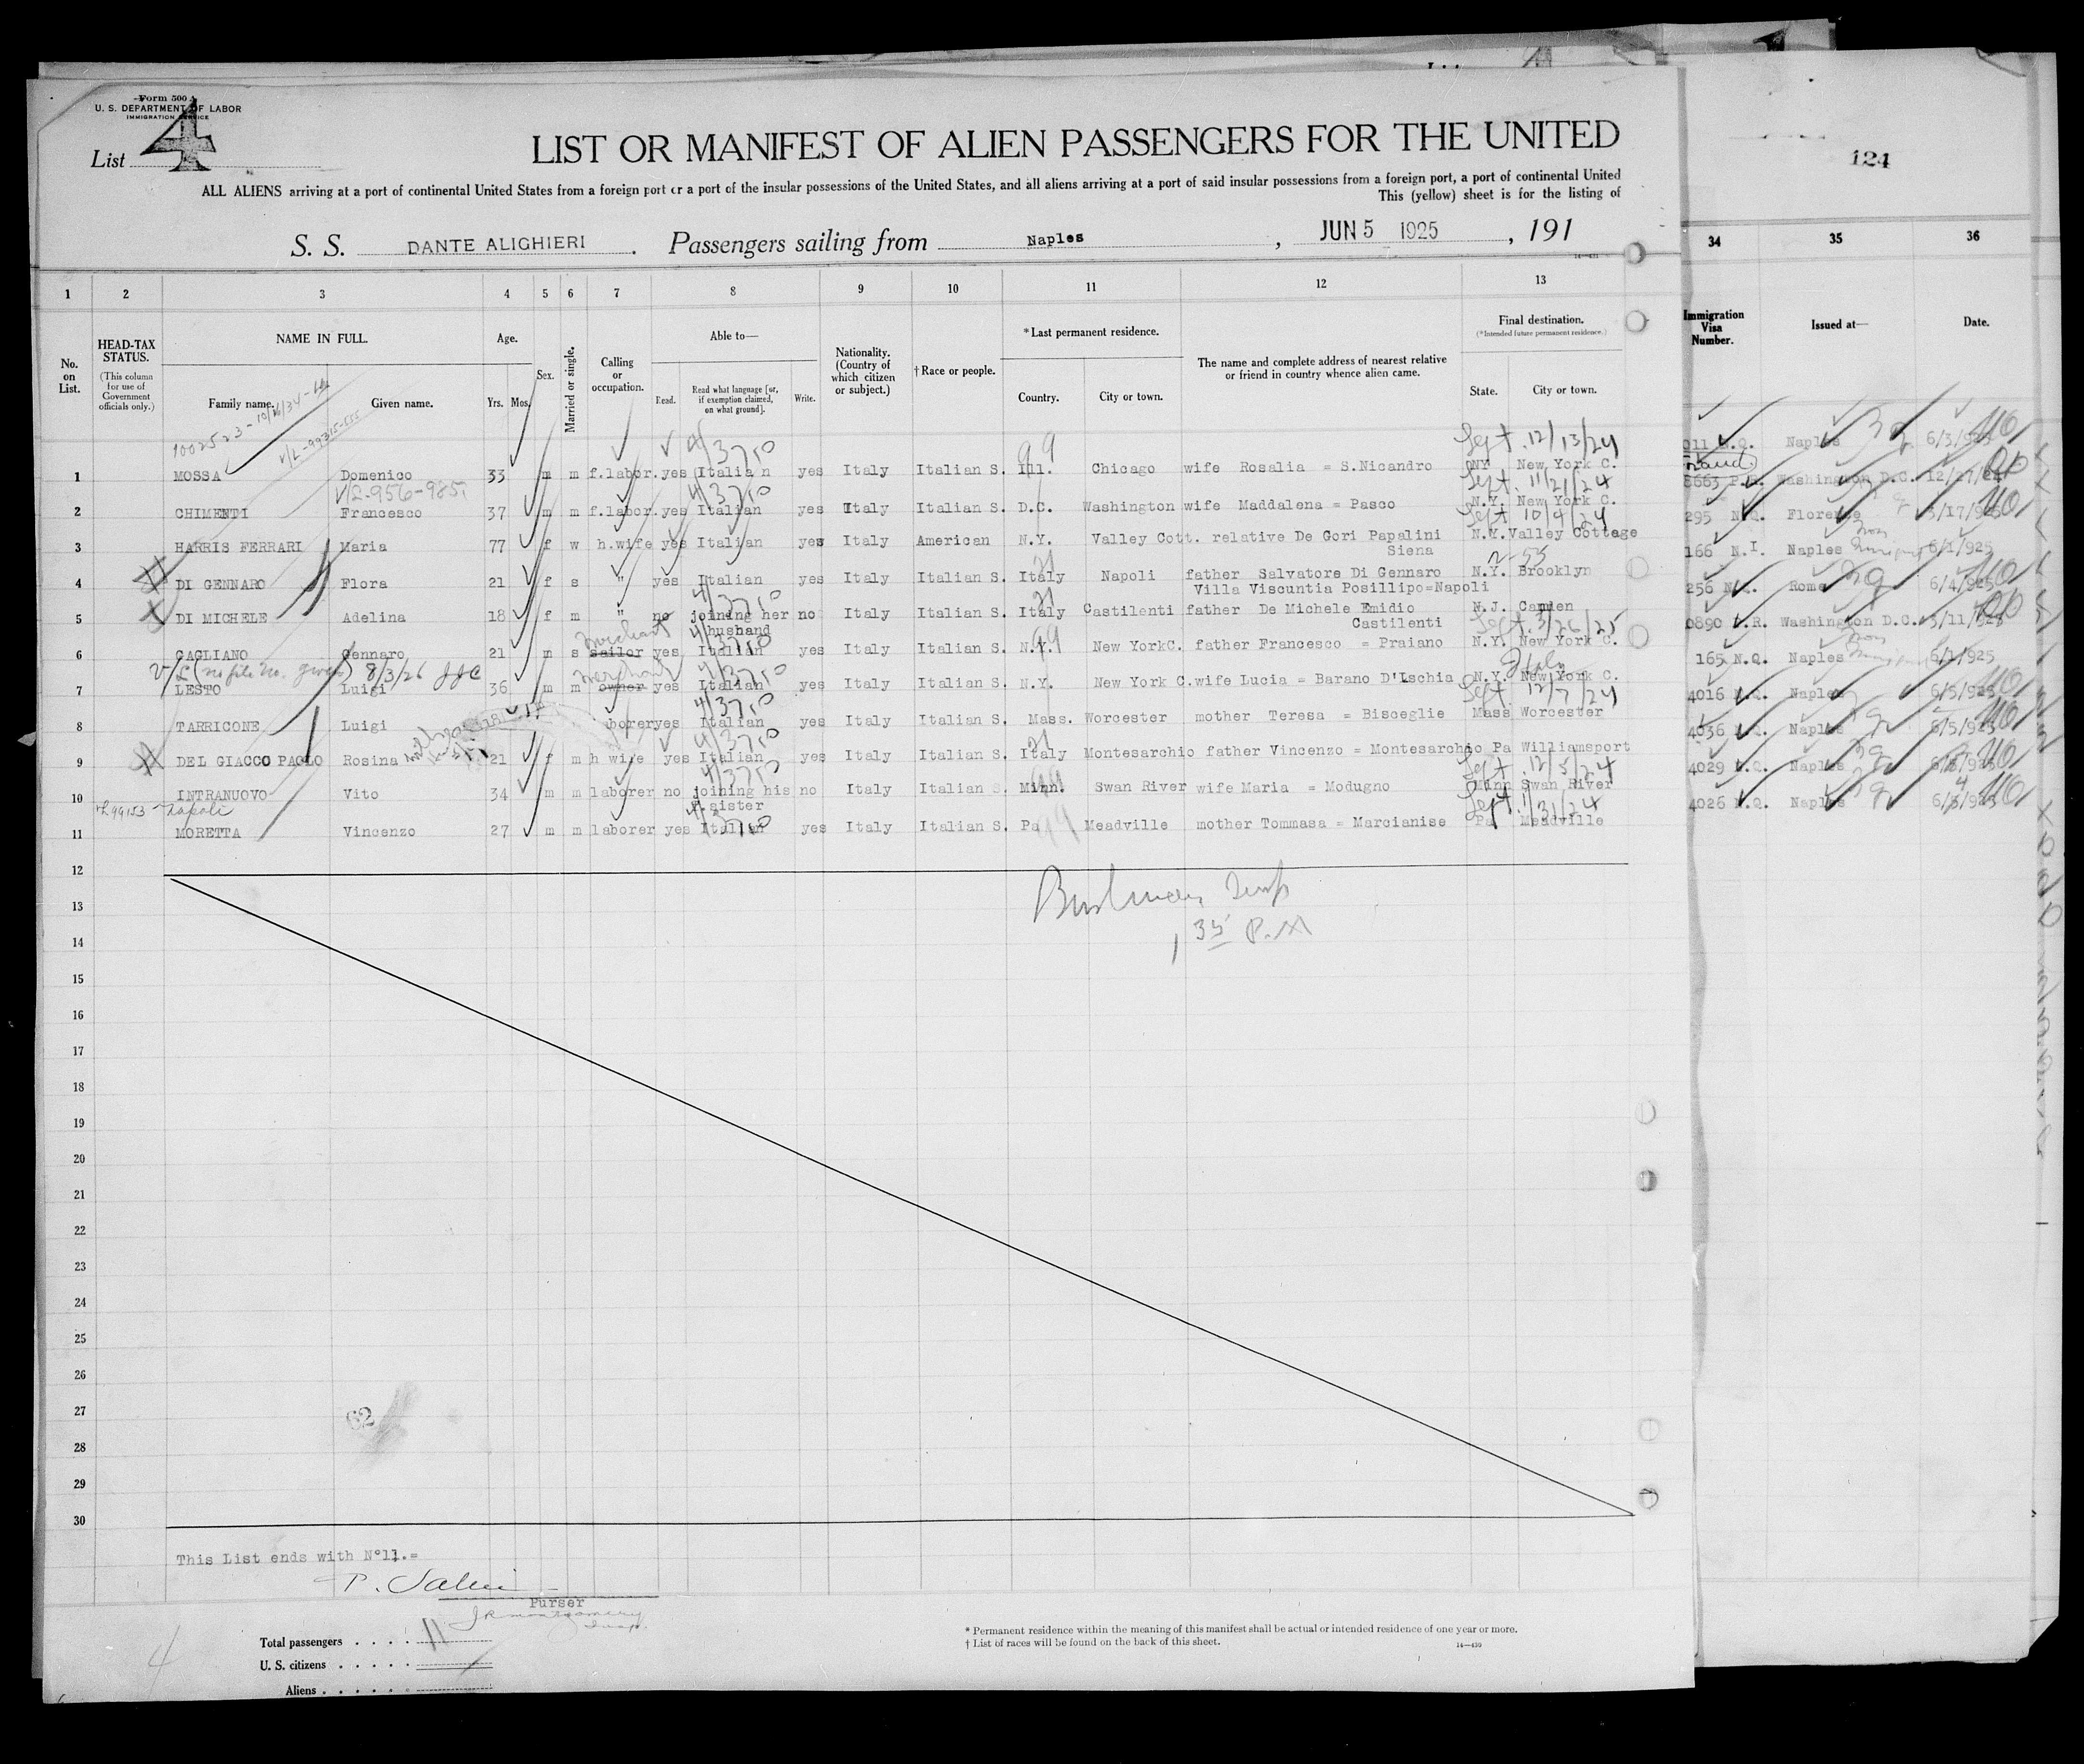 Form 500 A
U. S. DEPARTMENT OF LABOR
IMMIGRATION SERVICE
List 4
LIST OR MANIFEST OF ALIEN PASSENGERS FOR THE UNITED
ALL ALIENS arriving at a port of continental United States from a foreign port or a port of the insular possessions of the United States, and all aliens arriving at a port of said insular possessions from a foreign port, a port of continental United
This (yellow) sheet is for the listing of
S. S. DANTE ALIGHIERI. Passengers sailing from Naples, JUN 5 1925, 191
124
1 2 3 4 5 6 7 8 9 10 11 12 13 34 35 36
No. on List.
HEAD-TAX STATUS. (This column for use of Government officials only.)
NAME IN FULL. Family name. Given name.
Age. Yrs. Mos.
Sex.
Married or single.
Calling or occupation.
Able to— Read. Read what language [or, if exemption claimed, on what ground]. Write.
Nationality. (Country of which citizen or subject.)
†Race or people.
*Last permanent residence. Country. City or town.
The name and complete address of nearest relative or friend in country whence alien came.
Final destination. (*Intended future permanent residence.) State. City or town.
Immigration Visa Number.
Issued at—
Date.
Sept. 12/13/24
1 MOSSA Domenico 33 m m f.labor. yes Italian yes Italy Italian S. Ill. Chicago wife Rosalia = S.Nicandro NY New York C. 011 N.Q. Naples 6/3/925
Sept. 11/21/24
2 CHIMENTI Francesco 37 m m f.labor. yes Italian yes Italy Italian S. D.C. Washington wife Maddalena = Pasco N.Y. New York C. 8663 P.R. Washington D.C. 12/27/24
Sept 10/4/24
3 HARRIS FERRARI Maria 77 f w h.wife yes Italian yes Italy American N.Y. Valley Cott. relative De Gori Papalini Siena N.Y. Valley Cottage 295 N.Q. Florence 3/17/925
4 DI GENNARO Flora 21 f s " yes Italian yes Italy Italian S. Italy Napoli father Salvatore Di Gennaro N.Y. Brooklyn 166 N.I. Naples 6/1/925
Villa Viscuntia Posillipo=Napoli
5 DI MICHELE Adelina 18 f m " no joining her husband no Italy Italian S. Italy Castilenti father De Michele Emidio Castilenti N.J. Camden 256 N.Q. Rome 6/4/925
Sept. 3/26/25
6 GAGLIANO Gennaro 21 m s sailor merchant yes Italian yes Italy Italian S. N.Y. New YorkC. father Francesco = Praiano N.Y. New York C. 0890 P.R. Washington D.C. 3/11/925
V/L (no file no. given) 8/3/26 JJC
7 LESTO Luigi 36 m m owner merchant yes Italian yes Italy Italian S. N.Y. New York C. wife Lucia = Barano D'Ischia N.Y. New York C. Italy 165 N.Q. Naples 6/1/925
Sept. 12/7/24
8 TARRICONE Luigi borer yes Italian yes Italy Italian S. Mass. Worcester mother Teresa = Bisceglie Mass Worcester 4016 N.Q. Naples 6/5/925
9 DEL GIACCO PAOLO Rosina 21 f m h wife yes Italian yes Italy Italian S. Italy Montesarchio father Vincenzo = Montesarchio Pa Williamsport 4036 N.Q. Naples 6/5/925
Sept. 12/5/24
10 INTRANUOVO Vito 34 m m laborer no joining his sister no Italy Italian S. Minn. Swan River wife Maria = Modugno Minn Swan River 4029 N.Q. Naples
Napoli
11 MORETTA Vincenzo 27 m m laborer yes Italian yes Italy Italian S. Pa Meadville mother Tommasa = Marcianise Pa Meadville 4026 N.Q. Naples
12
13
14
15
16
17
18
19
20
21
22
23
24
25
26
27
28
29
30
35 P.M
62
This List ends with N°11.=
Purser
J R Montgomery
Insp.
Total passengers . . . . 11
U. S. citizens . . . . .
Aliens . . . . . .
4
* Permanent residence within the meaning of this manifest shall be actual or intended residence of one year or more.
† List of races will be found on the back of this sheet.
14—430